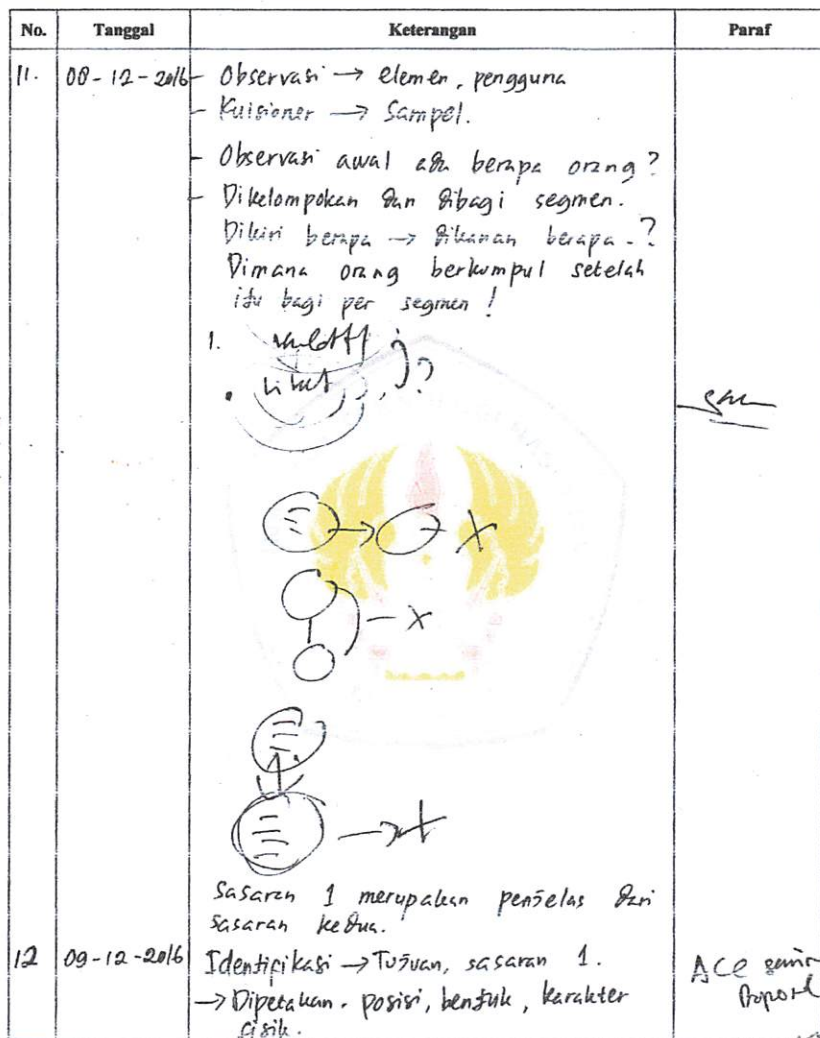 No. Tanggal Keterangan Paraf
11. 08-12-2016 - Observasi → elemen, pengguna
- Kuisioner → Sampel.
- Observasi awal ada berapa orang?
- Dikelompokan dan dibagi segmen.
Dikiri berapa → dikanan berapa.?
Dimana orang berkumpul setelah
itu bagi per segmen!
1.
?
→ - X
- X
→
Sasaran 1 merupakan penjelas dari
sasaran kedua.
12 09-12-2016 Identifikasi → Tujuan, sasaran 1. ACC
→ Dipetakan. posisi, bentuk, karakter
fisik.